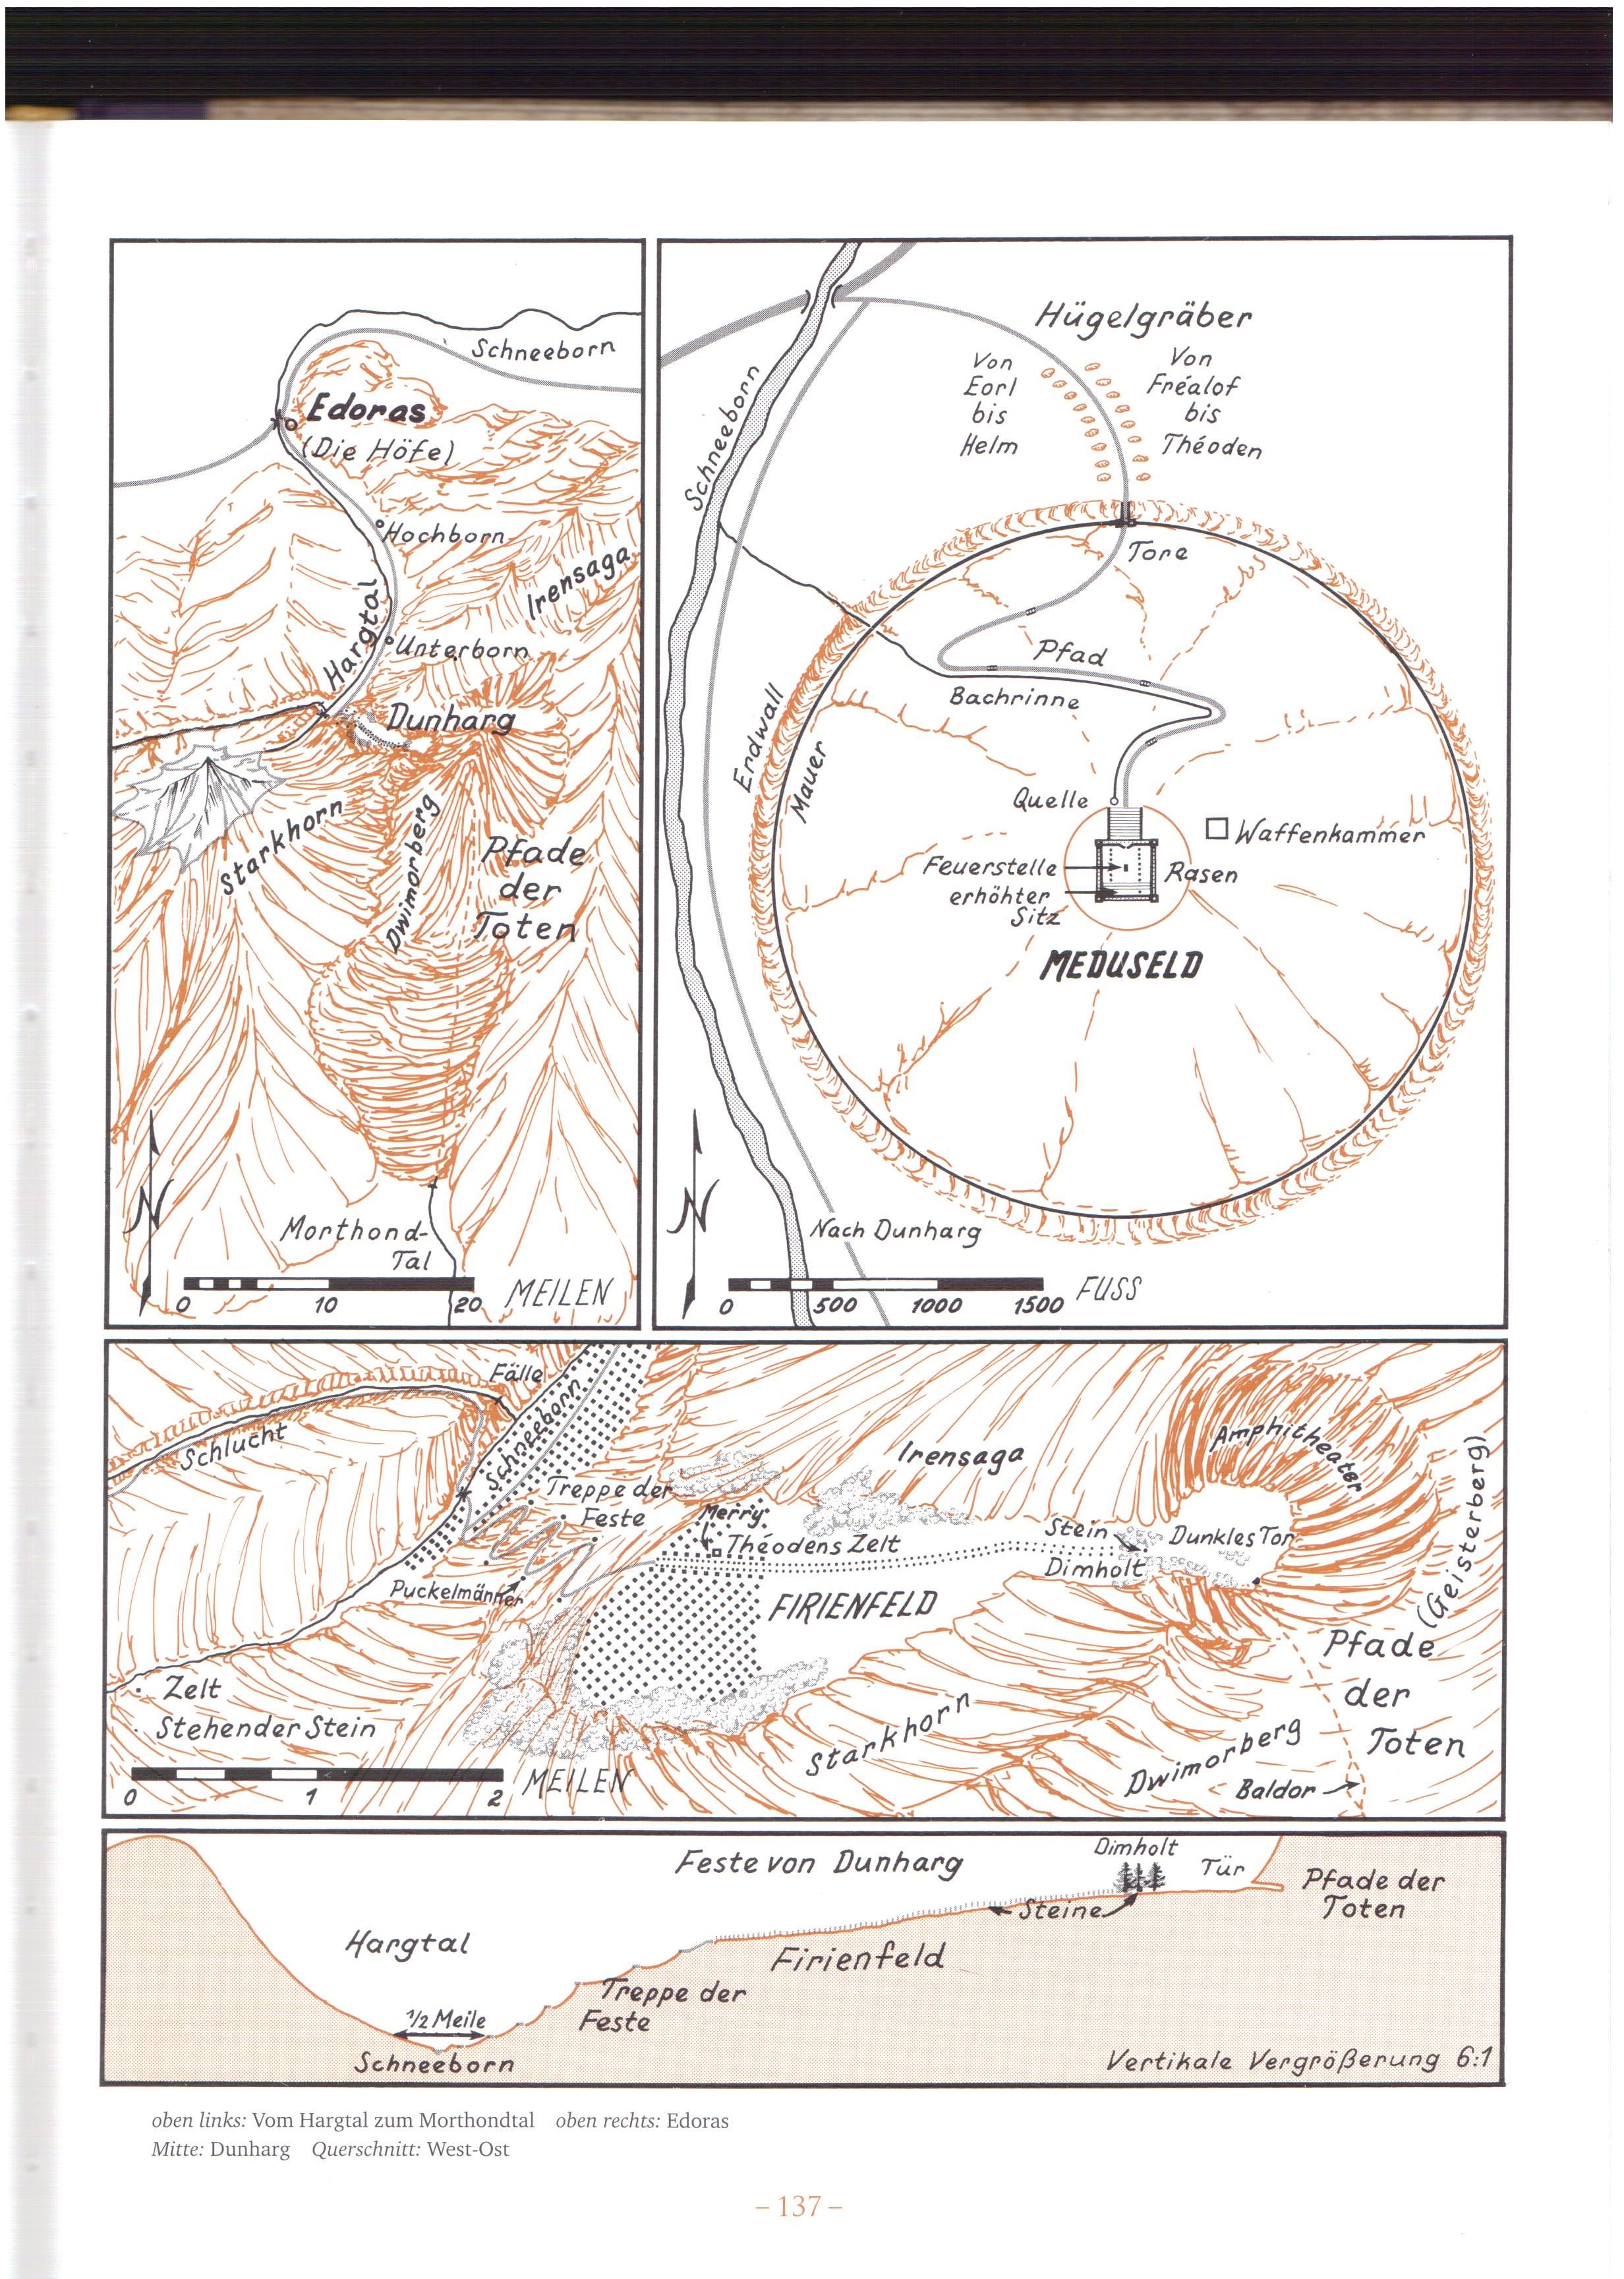 Schneeborn
Edoras
(Die Höfe)
Hochborn
Irensaga
Hargtal
Unterborn
Dunharg
Starkhorn
Dwimorberg
Pfade
der
Toten
Morthond-
Tal
N
0 10 20 MEILEN
Hügelgräber
Von
Eorl
bis
Helm
Von
Fréalof
bis
Théoden
Schneeborn
Tore
Pfad
Bachrinne
Erdwall
Mauer
Quelle
Waffenkammer
Feuerstelle
erhöhter
Sitz
Rasen
MEDUSELD
N
Nach Dunharg
0 500 1000 1500 FUSS
Fälle
Schneeborn
Schlucht
Treppe der
Feste
Puckelmänner
Merry
Théodens Zelt
Irensaga
Amphitheater
(Geisterberg)
Stein
Dunkles Tor
Dimholt
FIRIENFELD
Pfade
der
Toten
Zelt
Stehender Stein
Starkhorn
Dwimorberg
Baldor
0 1 2 MEILEN
Feste von Dunharg
Dimholt
Tür
Pfade der
Toten
Steine
Hargtal
Firienfeld
Treppe der
Feste
1/2 Meile
Schneeborn
Vertikale Vergrößerung 6:1
oben links: Vom Hargtal zum Morthondtal oben rechts: Edoras
Mitte: Dunharg Querschnitt: West-Ost
– 137 –